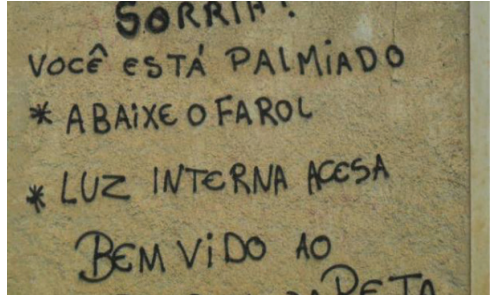 SORRIA!
VOCÊ ESTÁ PALMIADO
* ABAIXE O FAROL
* LUZ INTERNA ACESA
BEM VIDO AO
PETA